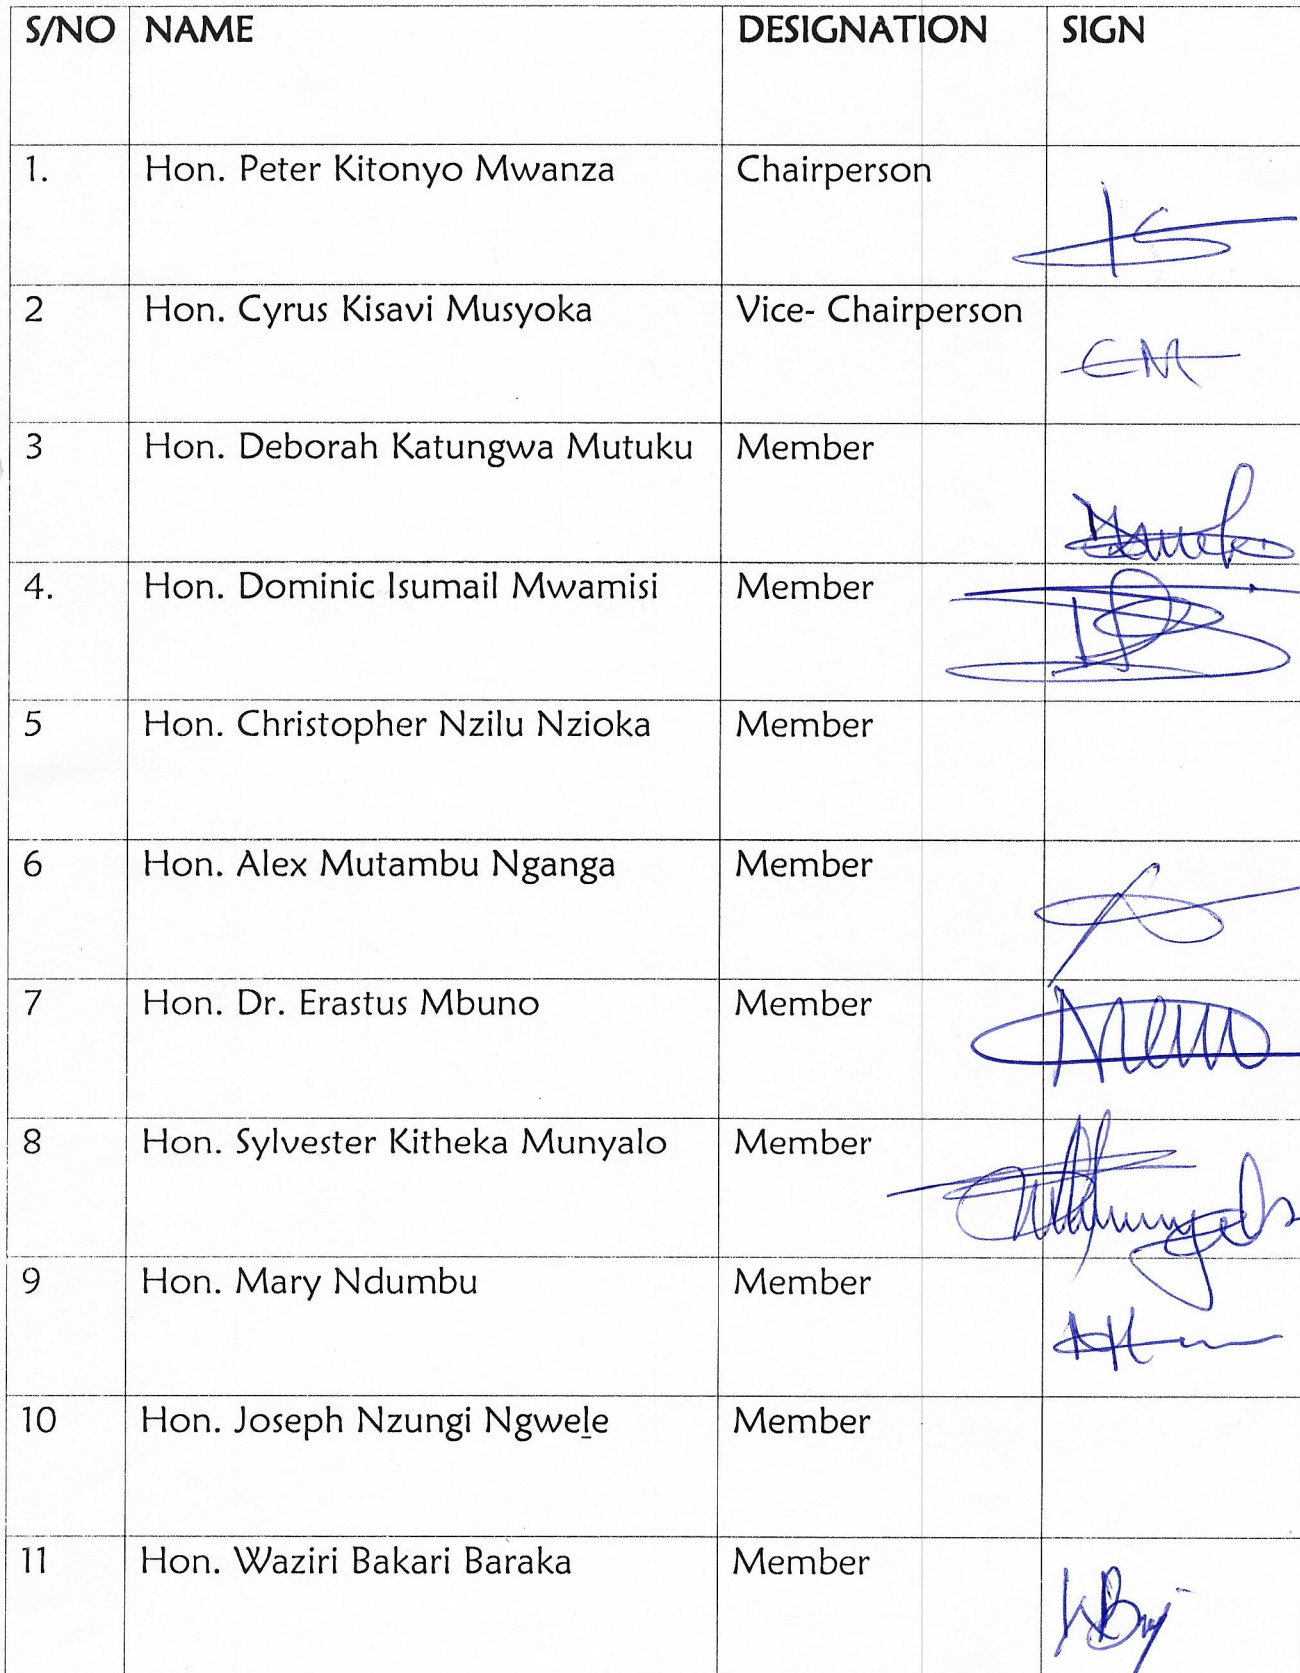 S/NO NAME DESIGNATION SIGN
1. Hon. Peter Kitonyo Mwanza Chairperson
2 Hon. Cyrus Kisavi Musyoka Vice- Chairperson
3 Hon. Deborah Katungwa Mutuku Member
4. Hon. Dominic Isumail Mwamisi Member
5 Hon. Christopher Nzilu Nzioka Member
6 Hon. Alex Mutambu Nganga Member
7 Hon. Dr. Erastus Mbuno Member
8 Hon. Sylvester Kitheka Munyalo Member
9 Hon. Mary Ndumbu Member
10 Hon. Joseph Nzungi Ngwele Member
11 Hon. Waziri Bakari Baraka Member